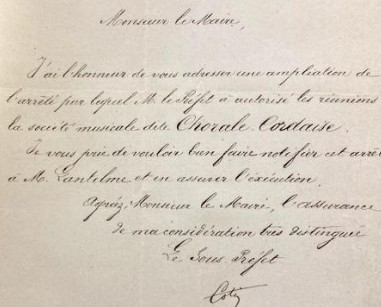 Monsieur le Maire,
J'ai l'honneur de vous adresser une ampliation de
l'arrêté par lequel M. le Préfet a autorisé les réunions
la société musicale dite Chorale Cordaise.
Je vous prie de vouloir bien faire notifier cet arrêt
à M. Lantelme et en assurer l'exécution.
Agréez, Monsieur le Maire, l'assurance
de ma considération très distinguée
Le Sous Préfet